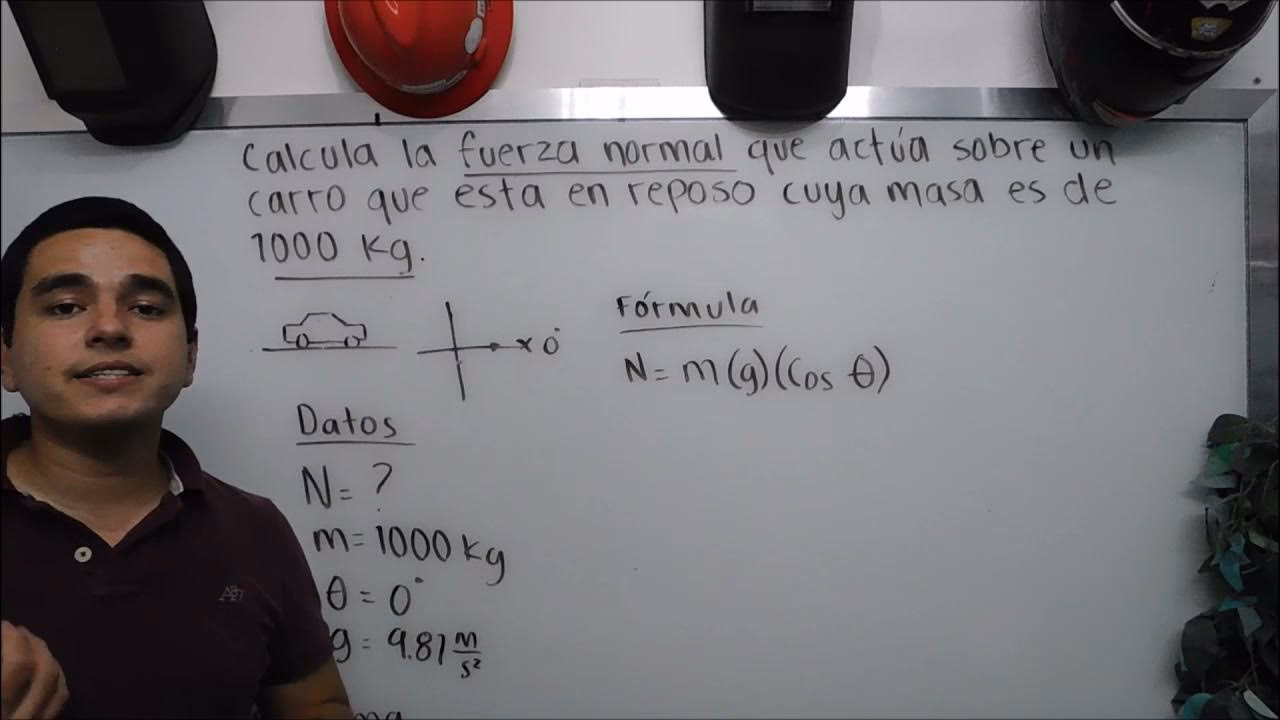 Calcula la fuerza normal que actúa sobre un
carro que esta en reposo cuya masa es de
1000 kg.
x 0°
Fórmula
N = m(g)(Cos θ)
Datos
N = ?
m = 1000 kg
θ = 0°
g = 9.81 m/s²